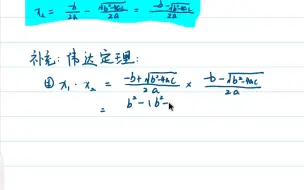 x₂ = -b/2a - √b²-4ac/2a = -b-√b²-4ac/2a
补充: 伟达定理:
① x₁ · x₂ = -b+√b²-4ac/2a × -b-√b²-4ac/2a
= b² - (b² -